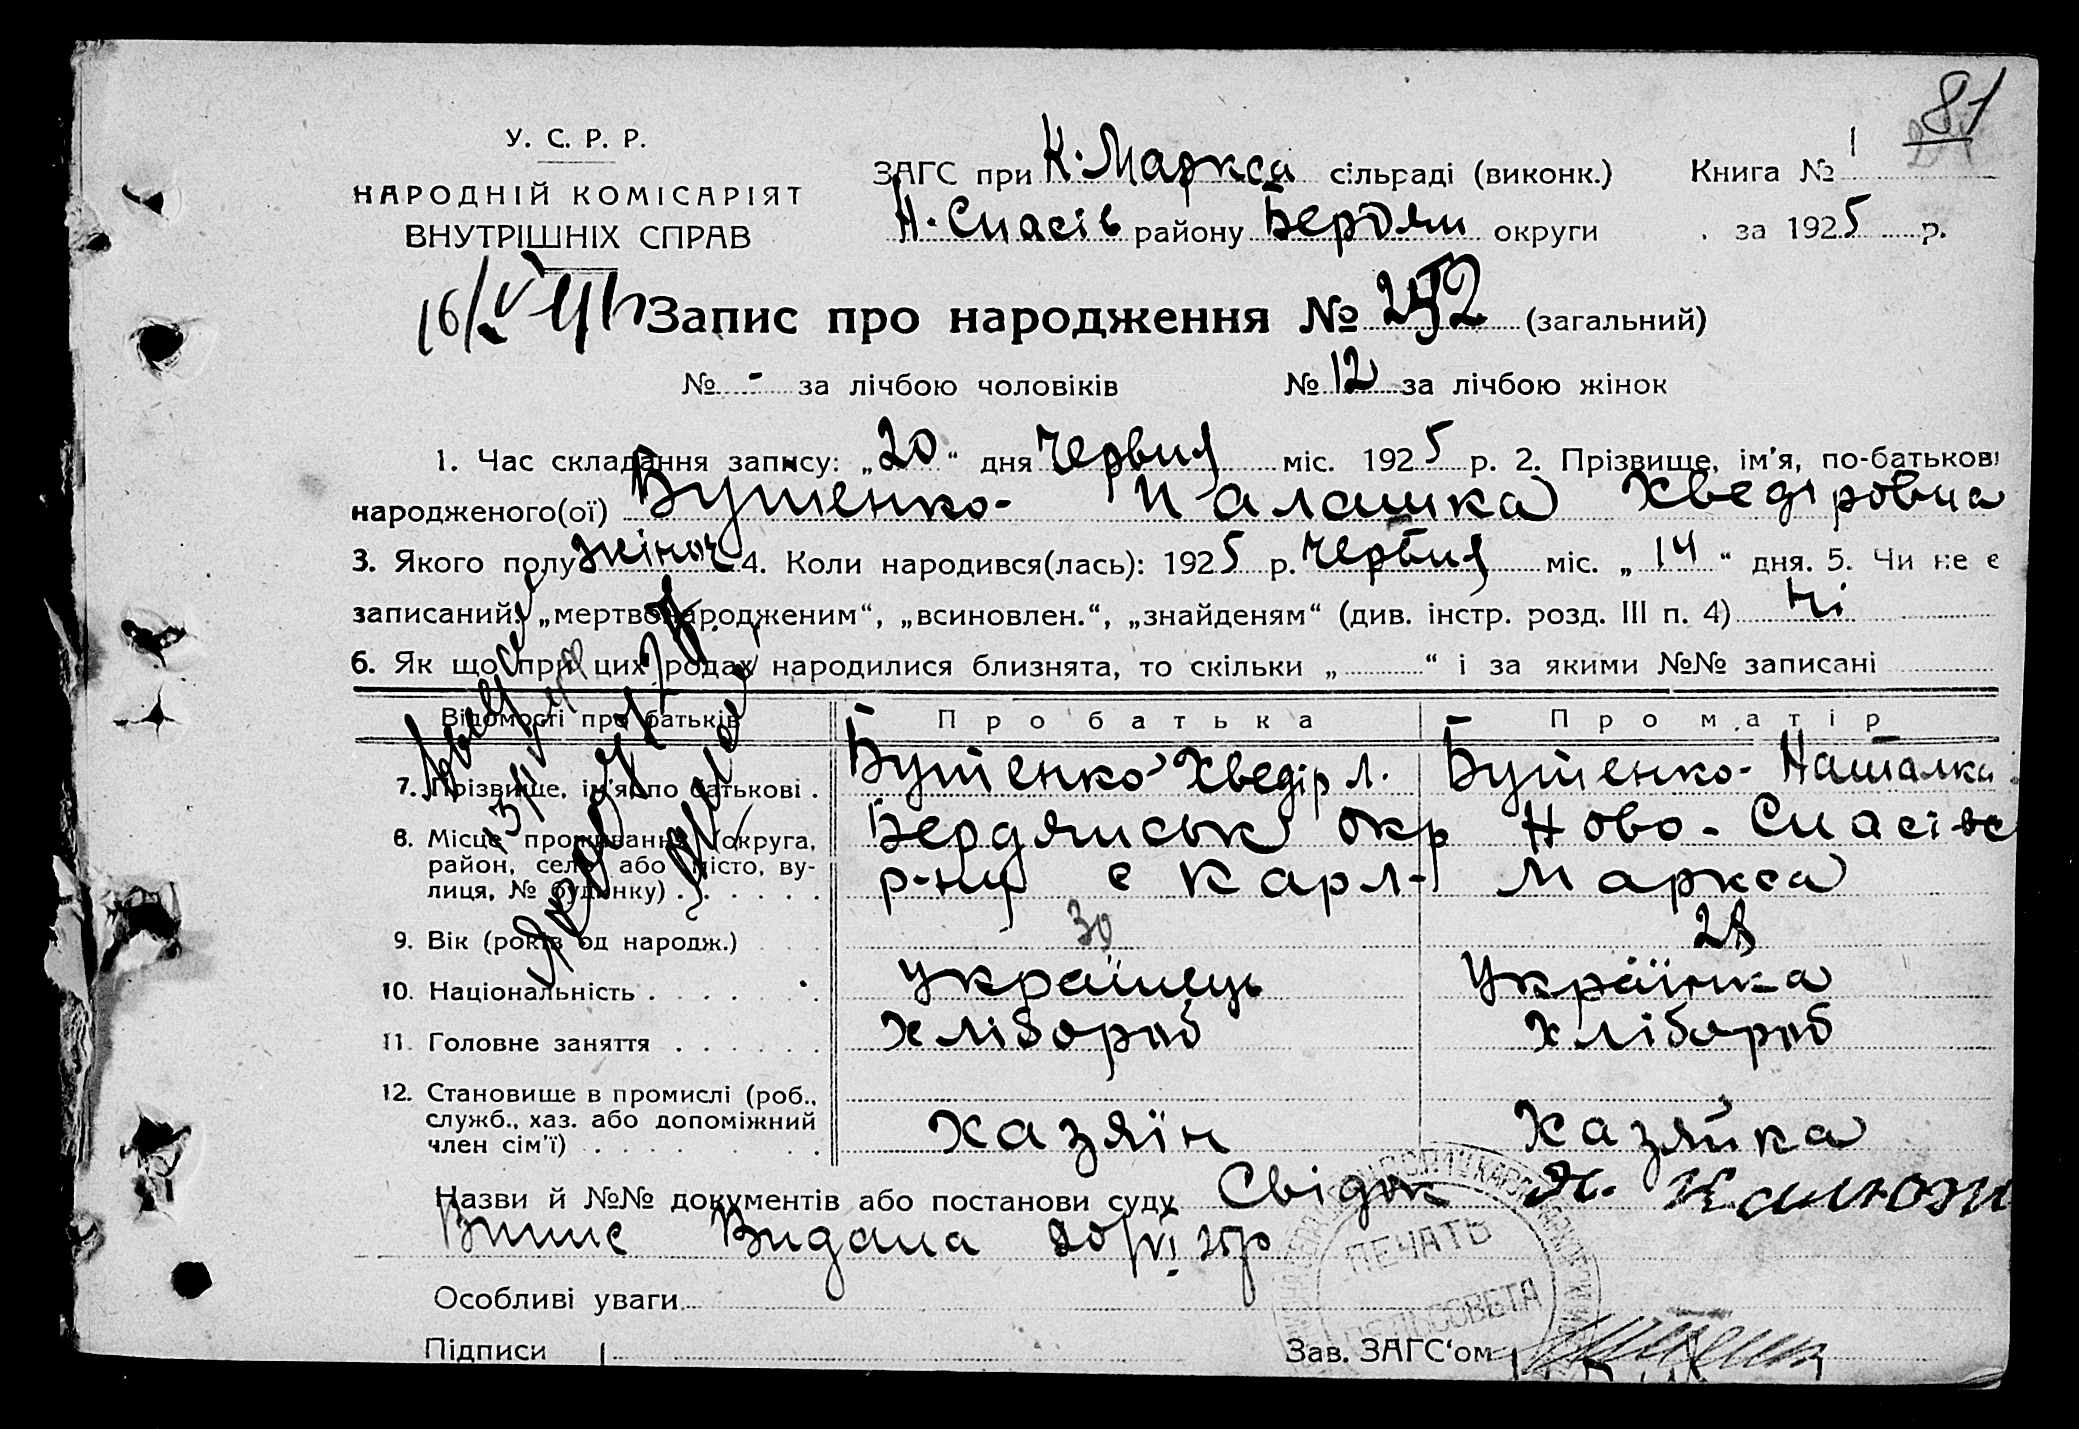 81
У. С. Р. Р.
НАРОДНІЙ КОМІСАРІЯТ
ВНУТРІШНІХ СПРАВ
ЗАГС при К. Маркса сільраді (виконк.) Книга № 1
Н. Спасів району Бердян округи за 1925 р.
Запис про народження № (загальний)
№ - за лічбою чоловіків № 12 за лічбою жінок
1. Час складання запису: „20“ дня червня міс. 1925 р. 2. Прізвище, ім'я, по-батькові
народженого(ої) Бутенко- Палашка Хведіровна
3. Якого полу жіноч 4. Коли народився(лась): 1925 р. червня міс. „14“ дня. 5. Чи не є
записаний: „мертвонародженим“, „всиновлен.“, „знайденям“ (див. інстр. розд. III п. 4) Ні
6. Як що при цих родах народилися близнята, то скільки „ “ і за якими №№ записані
Відомості про батьків Про батька Про матір
7. Прізвище, ім'я, по батькові . Бутенко Хведір Л. Бутенко- Наталка
8. Місце проживання (округа, район, село або місто, ву-лиця, № будинку) Бердянськ окр Ново-Спасівс
р-ну с Карл- Маркса
9. Вік (років од народж.) 30 28
10. Національність українець Українка
11. Головне заняття хлібороб хлібороб
12. Становище в промислі (роб., служб., хаз. або допоміжний член сім'ї) хазяїн хазяйка
Назви й №№ документів або постанови суду Свідок
Випис Видана 20/VI 25р
Особливі уваги
Підписи Зав. ЗАГС'ом
ПЕЧАТЬ
СЕЛЬСОВЕТА